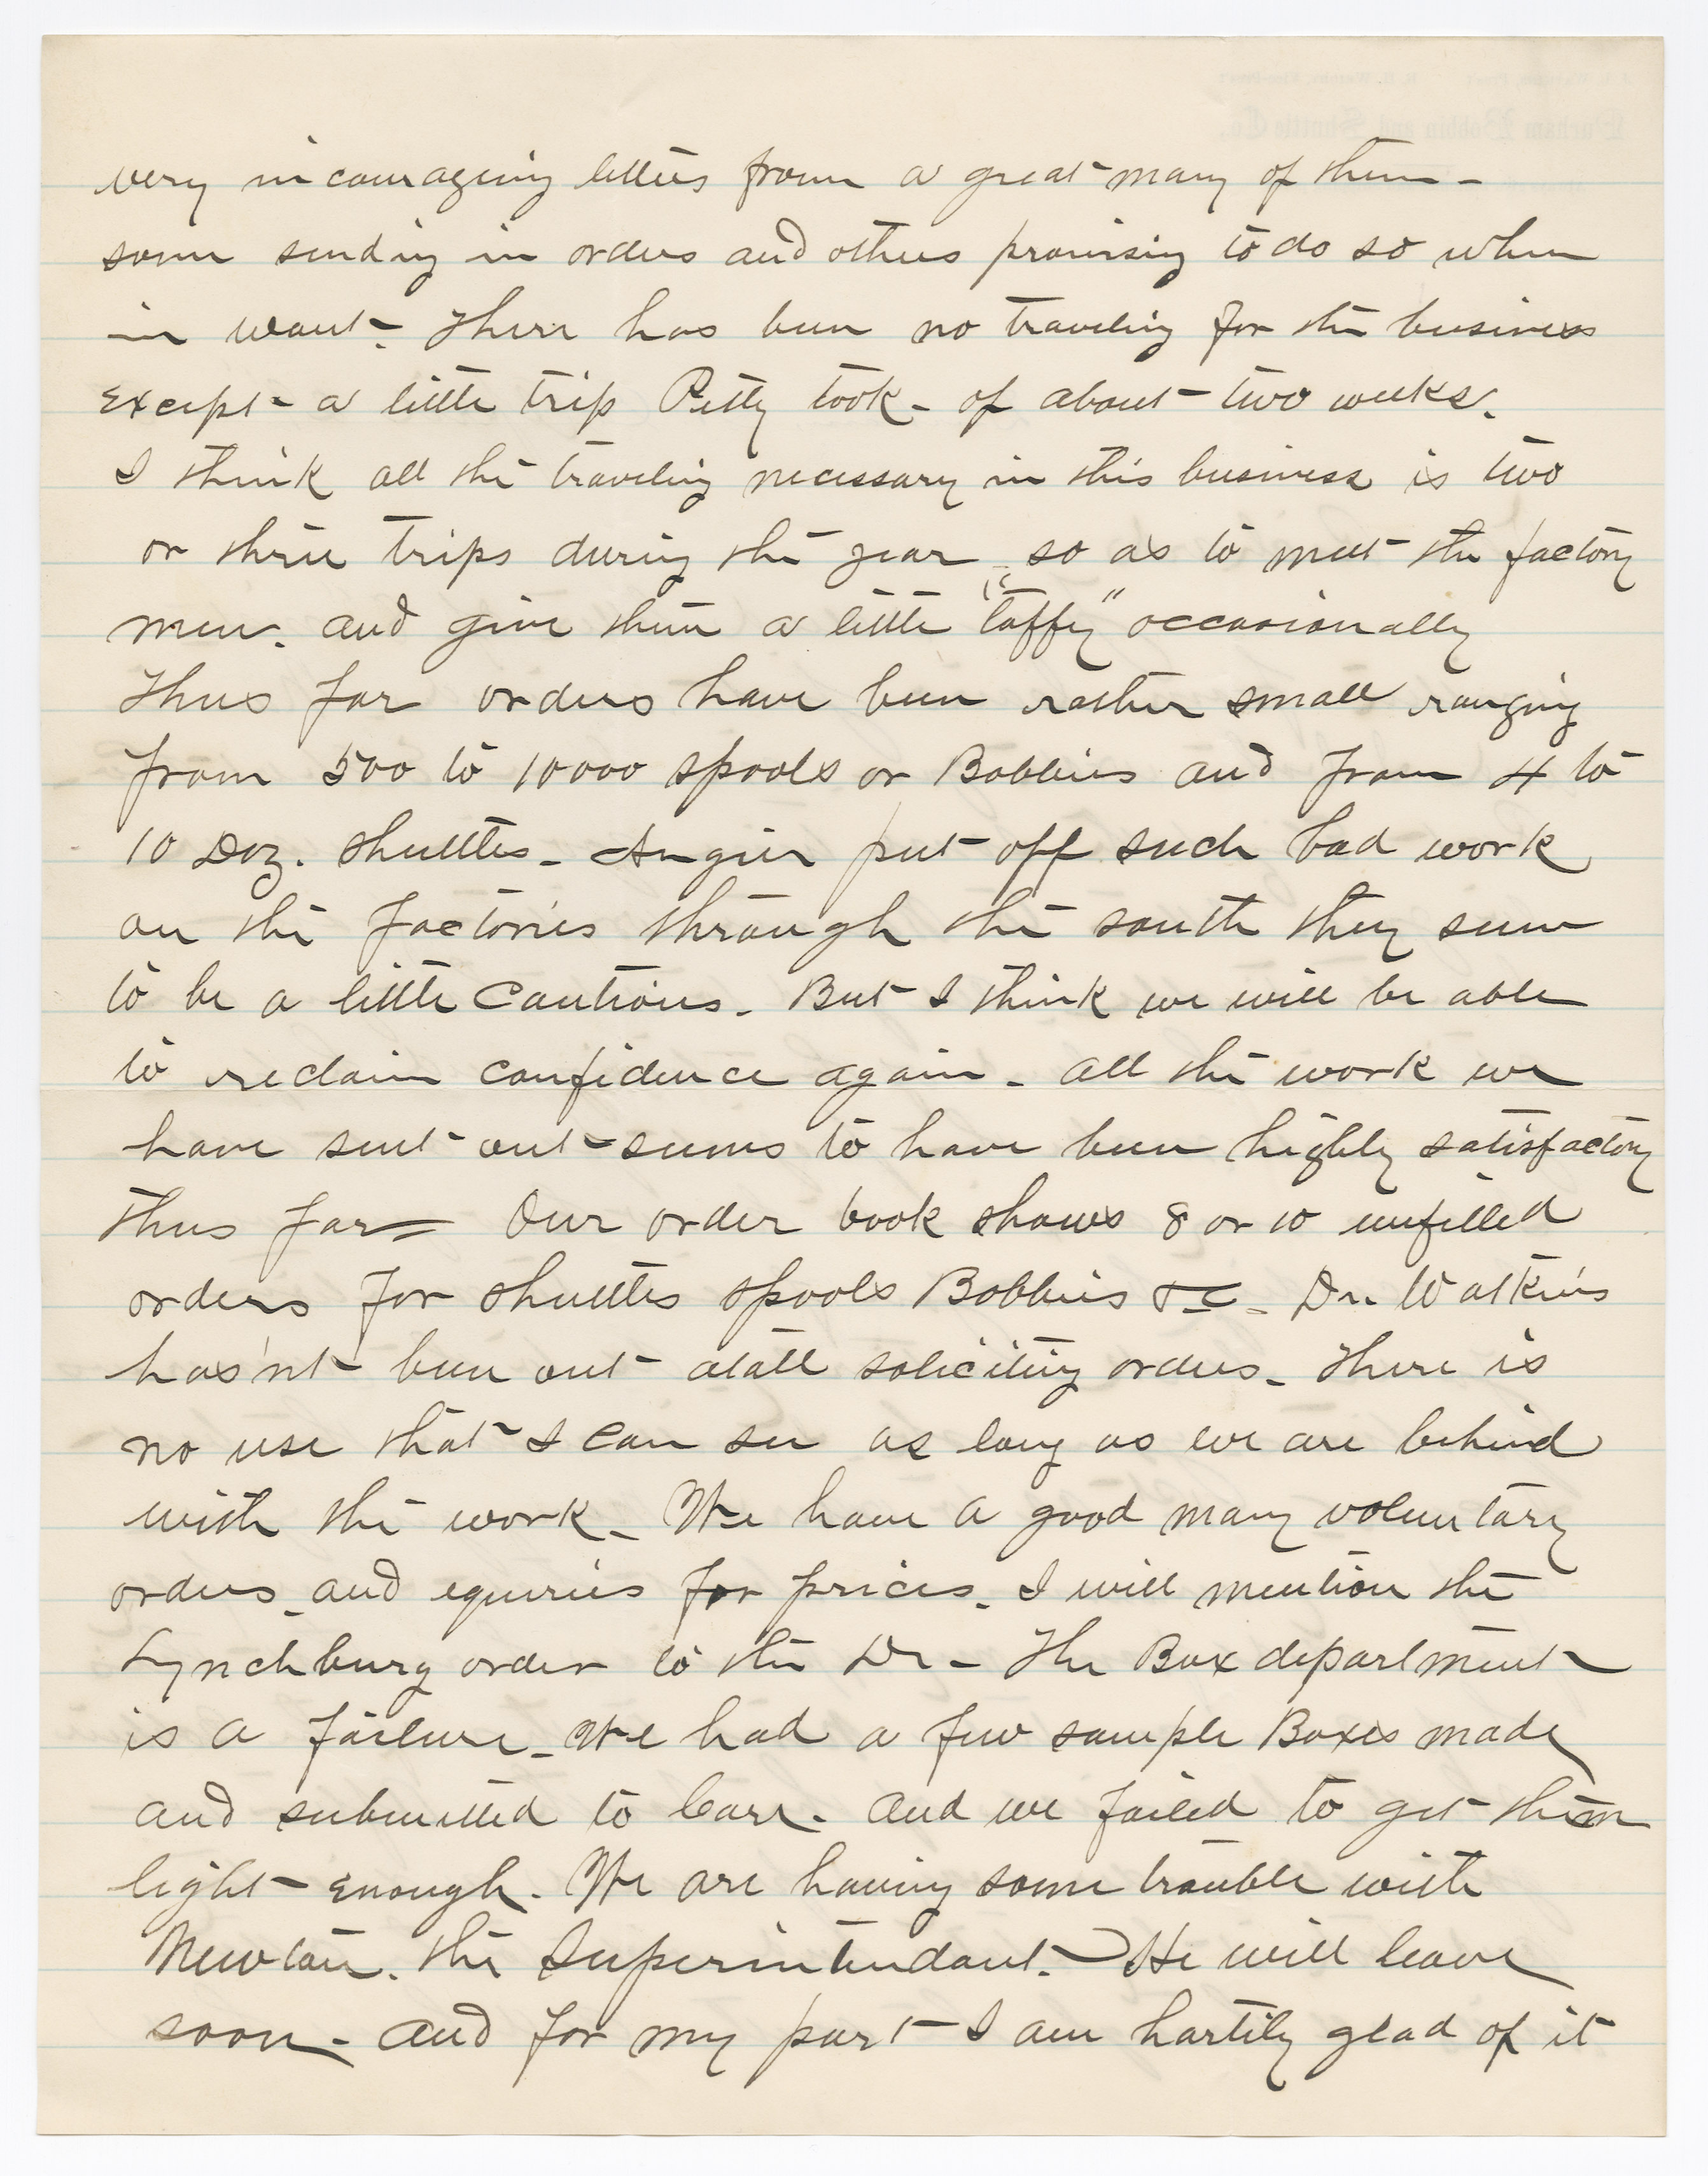 very incourageing letters from a great many of them -
some sending in orders and others promising to do so when
in want - There has been no traveling for the business
except - a little trip Petty took - of about two weeks.
I think all the traveling necessary in this business is two
or three trips during the year - so as to meet the factory
men. and give them a little "taffy" occasionally
Thus far orders have been rather small ranging
from 500 to 10000 spools or Bobbins and from 4 to
10 Doz. shuttles - Angier put off such bad work
on the factories through the south they seem
to be a little Cautious - But I think we will be able
to reclaim confidence again - all the work we
have sent out seems to have been highly satisfactory
thus far - Our order book shows 8 or 10 unfilled
orders for shuttles spools Bobbins &c - Dr. Watkins
has'nt been out atall soliciting orders - There is
no use that I can see as long as we are behind
with the work - We have a good many voluntary
orders - and equiries for prices. I will mention the
Lynchburg order to the Dr - The Box department
is a failure - We had a few sample Boxes made
and submitted to Carr - and we failed to get them
light enough. We are having some trouble with
Newton. the Superintendant. - He will leave
soon - and for my part I am hartily glad of it